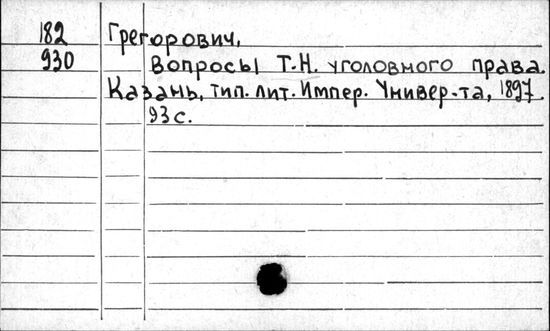 182 Грегорович,
930 Вопросы Т.Н. уголовного права.
Казань, тип. лит. Импер. Универ-та, 1897.
93 с.